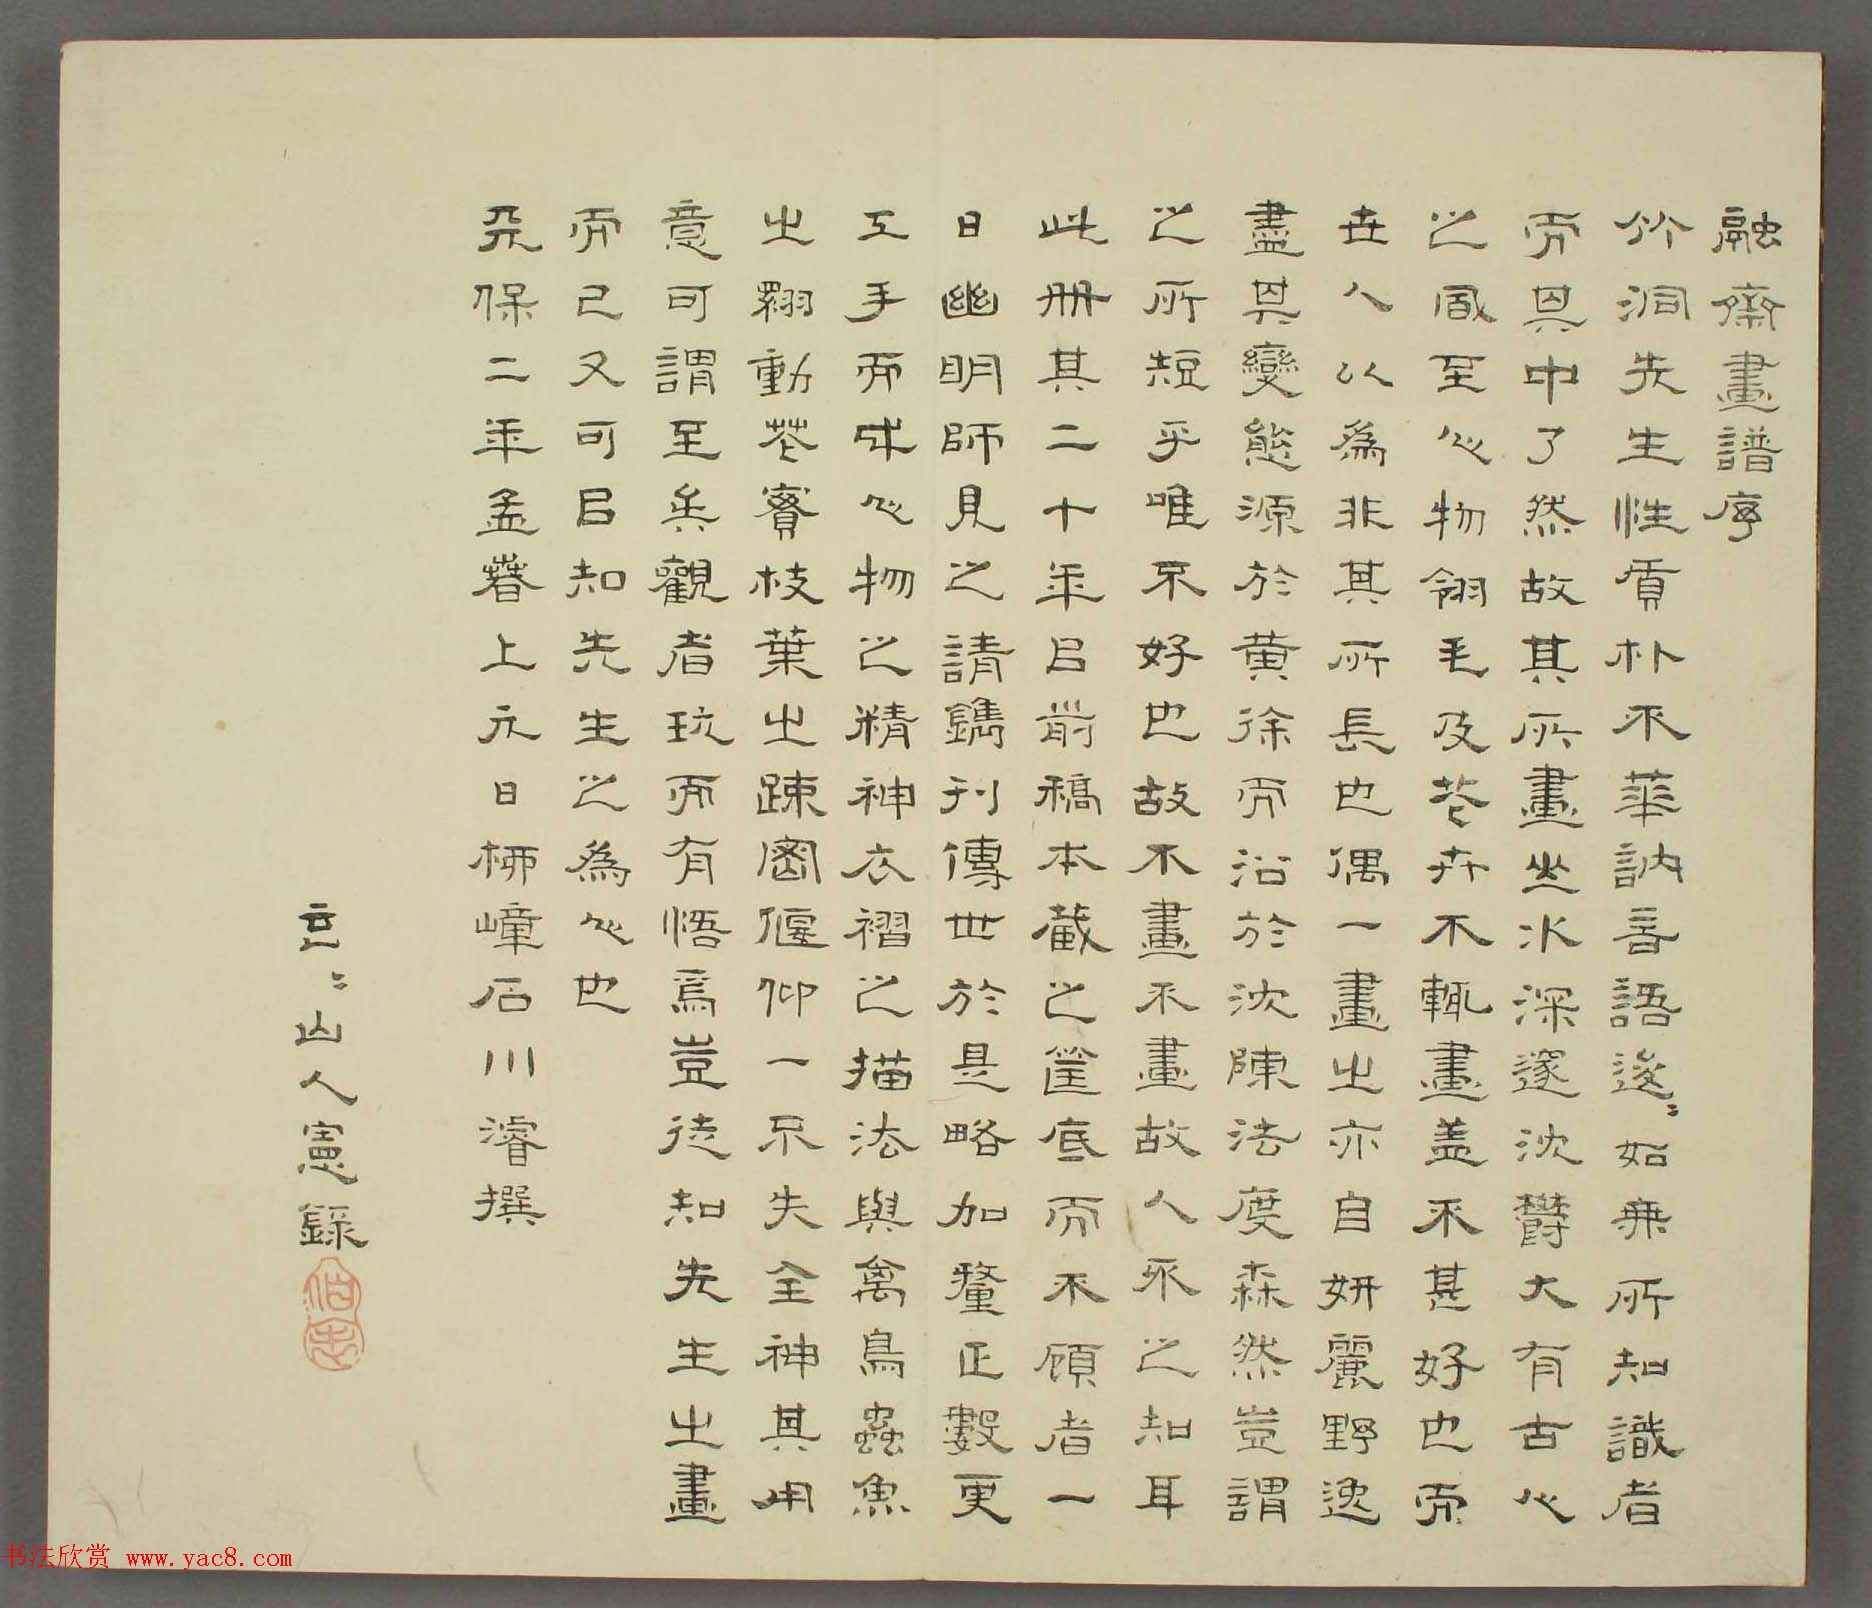 融齋畫譜序
竹洞先生性質朴不華訥言語逡〻如無所知識者
而其中了然故其所畫山水深邃沈鬱大有古人
之風至人物翎毛及花卉不輒畫盖不甚好也而
世人以為非其所長也偶一畫之亦自妍麗野逸
盡其變態源於黄徐而沿於沈陳法度森然豈謂
之所短乎唯不好也故不畫不畫故人不之知耳
此册其二十年㠯前稿本藏之筐底而不顧者一
日幽明師見之請鐫刊傳世於是略加釐正數更
工手而成人物之精神衣褶之描法與禽鳥蟲魚
之翔動花實枝葉之疎密偃仰一不失全神其用
意可謂至矣觀者玩而有悟焉豈徒知先生之畫
而已又可㠯知先生之為人也
天保二年孟春上元日栁嶂石川濬撰
玄〻山人憲錄
书法欣赏 www.yac8.com